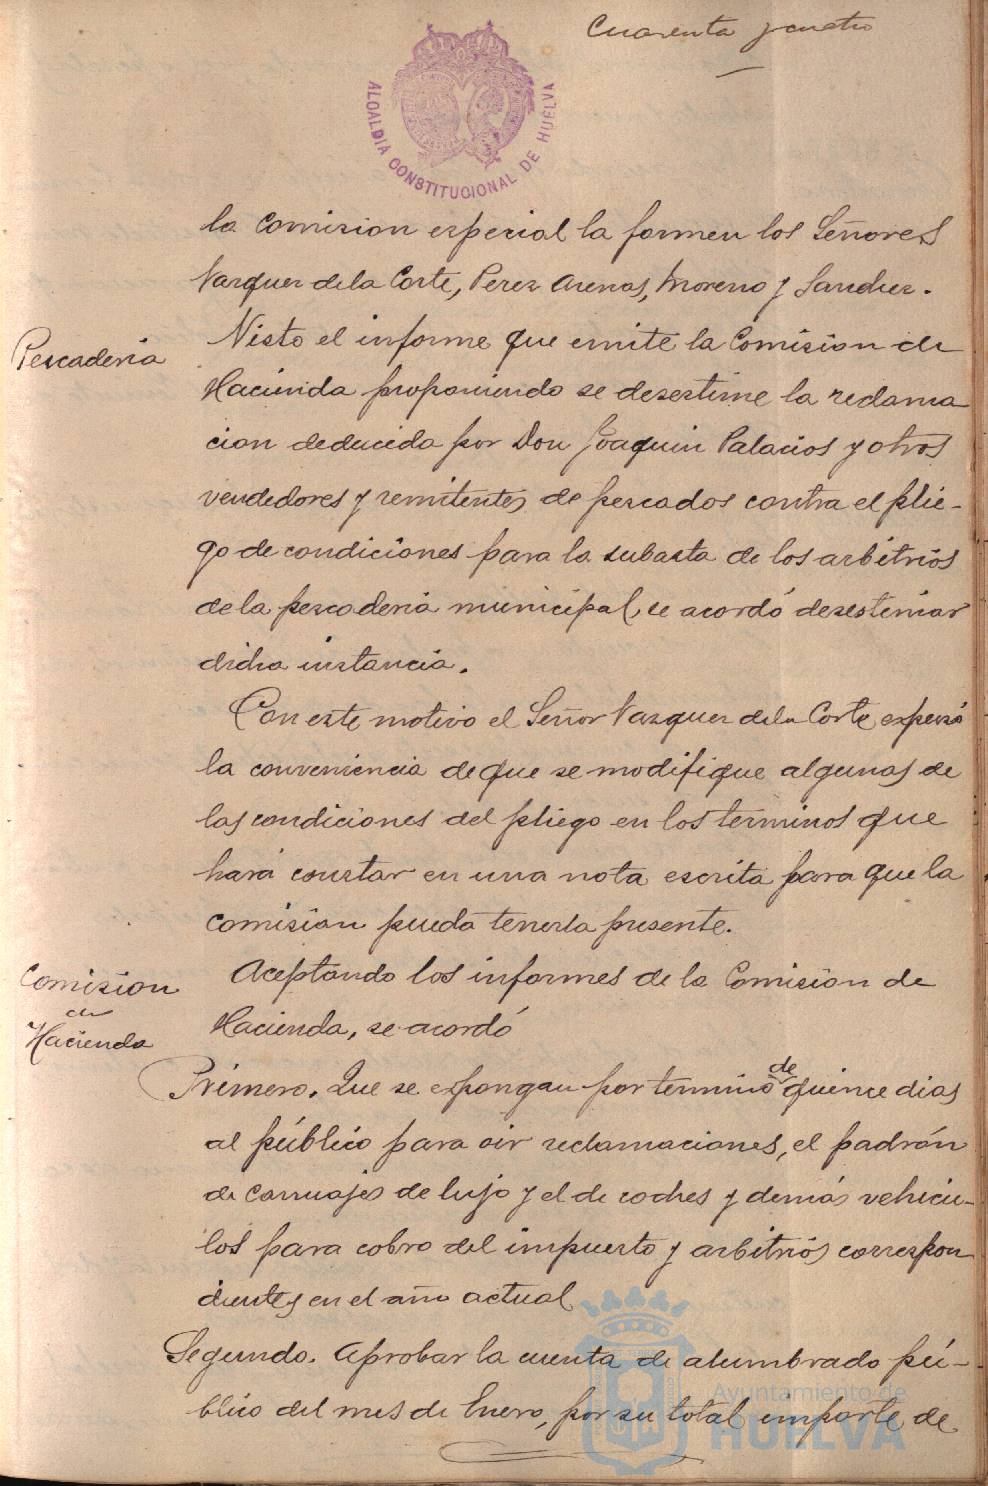 Cuarenta y cuatro
ALCALDIA CONSTITUCIONAL DE HUELVA
la Comision especial la formen los Señores
Vazquez de la Corte, Perez Arenas, Moreno y Sanchez.
Pescaderia
Visto el informe que emite la Comision de
Hacienda proponiendo se desestime la reclama
cion deducida por Don Joaquin Palacios y otros
vendedores y remitentes de pescados contra el plie-
go de condiciones para la subasta de los arbitrios
de la pescaderia municipal, se acordó desestimar
dicha instancia.
Con este motivo el Señor Vazquez de la Corte expresó
la conveniencia de que se modifique algunas de
las condiciones del pliego en los terminos que
hará constar en una nota escrita para que la
comision pueda tenerla presente.
Comision
de
Hacienda
Aceptando los informes de la Comision de
Hacienda, se acordó
Primero. Que se expongan por termino de quince dias
al público para oir reclamaciones, el padrón
de carruajes de lujo y el de coches y demás vehicu-
los para cobro del impuesto y arbitrios correspon
dientes en el año actual
Segundo. Aprobar la cuenta de alumbrado pú-
blico del mes de Enero, por su total importe de
Ayuntamiento de
HUELVA